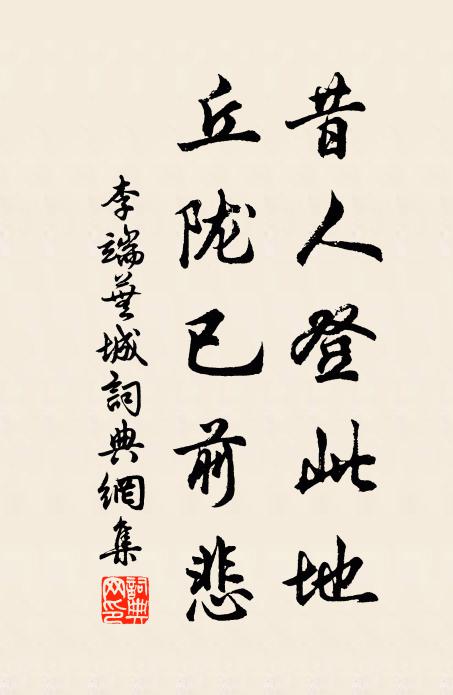 昔人登此地
丘陇已前悲
李端蕪城詞典網集
詞典网印